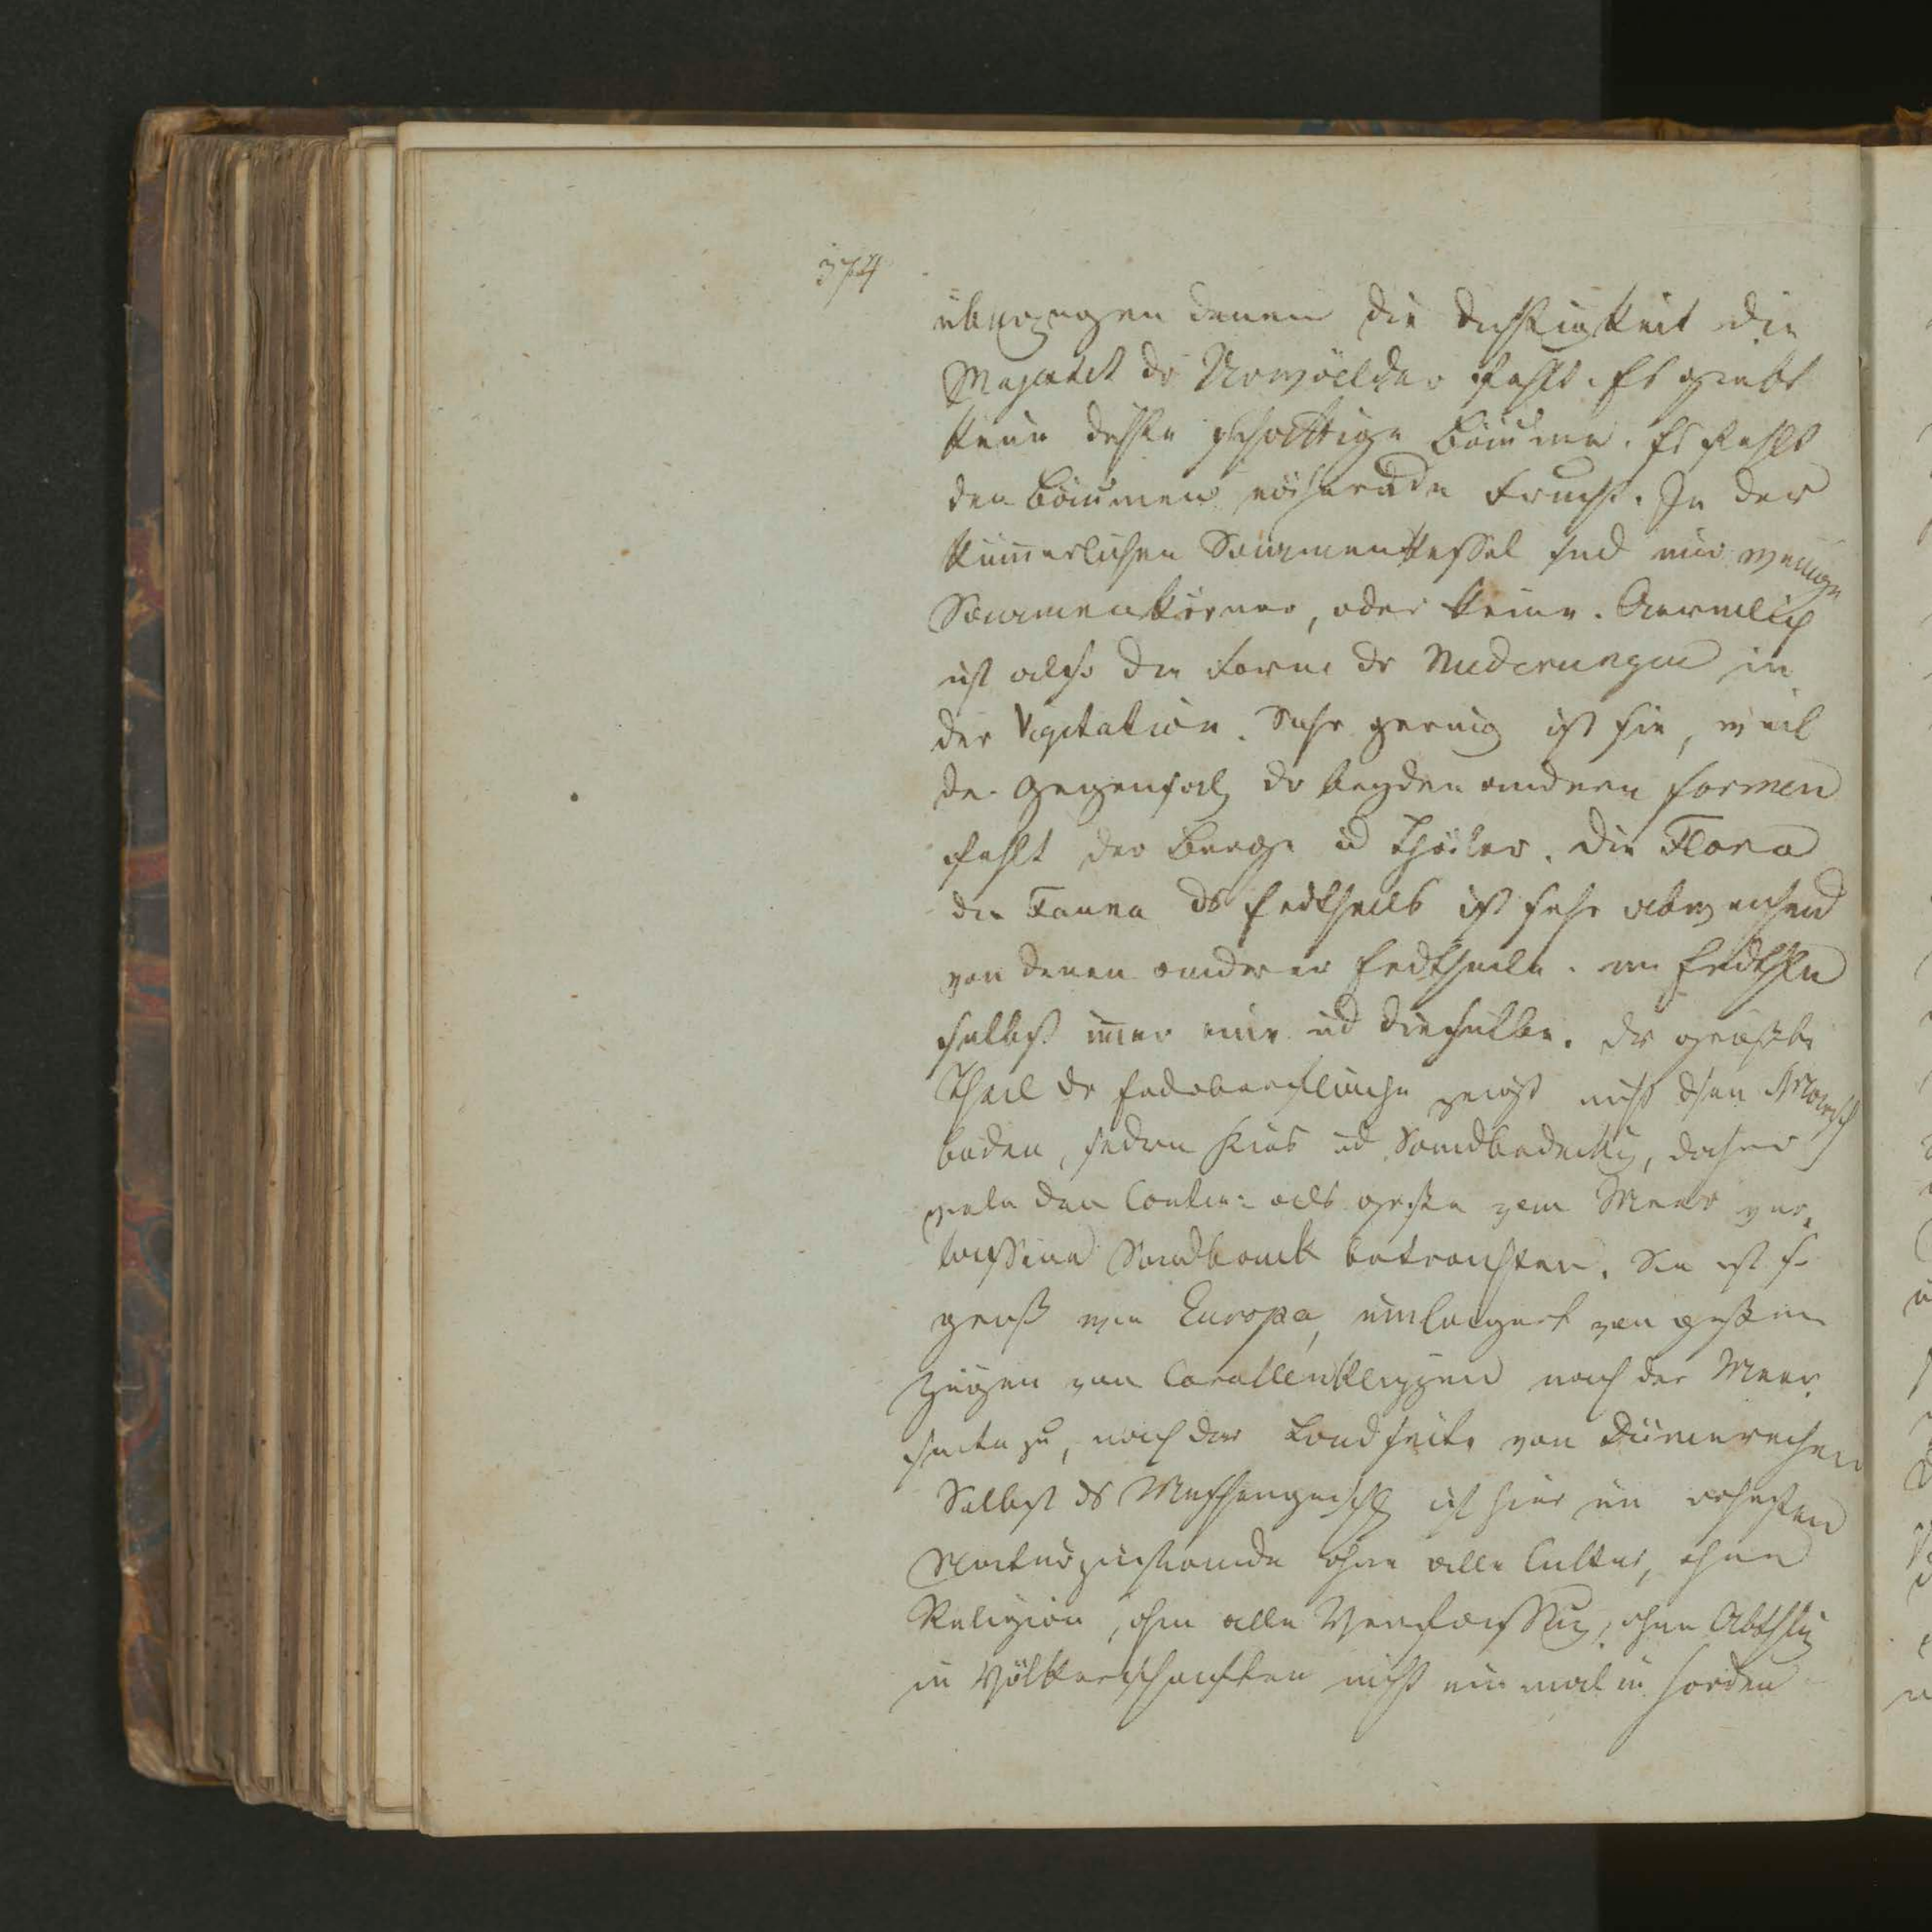 374
überzogen denen die Dichtigkeit die
Majestät dr Urwälder fehlt. Es giebt
keine dichte schattige Bäume. Es fehlt
den Bäumen nährende Frucht. In der
kümerlichen Saamenkapsel sind nur wenige
Saamenkörner, oder keine. Aermlich
ist also die Form dr Niederungen in
der Vegetation. Sehr gering ist sie, weil
der Gegensatz dr beyden andern Formen
fehlt der Berge ud Thäler. Die Flora
die Fauna ds Erdtheils ist sehr abweichend
von denen anderer Erdtheile. im Erdthle
selbst imer eine ud dieselbe. Dr größte
Theil dr Erdoberfläche zeigt nicht den Marsch
boden, sodern Kies ud Sandbedeckg, daher
viele den Contin: als großen vom Meer ver,
lassene Sandbank betrachten. Sie ist so
groß wie Europa, umlagert von großen
Zügen von Corallenklippen nach der Meer
seite zu, nach der Landseite von Dünenreihen
Selbst ds Menschengeschl ist hier im rohesten
Naturzustande ohne alle Cultur, ohne
Religion, ohne alle Verfassug, ohne Abthlg
in Völkerschaften nicht ein mal in Horden